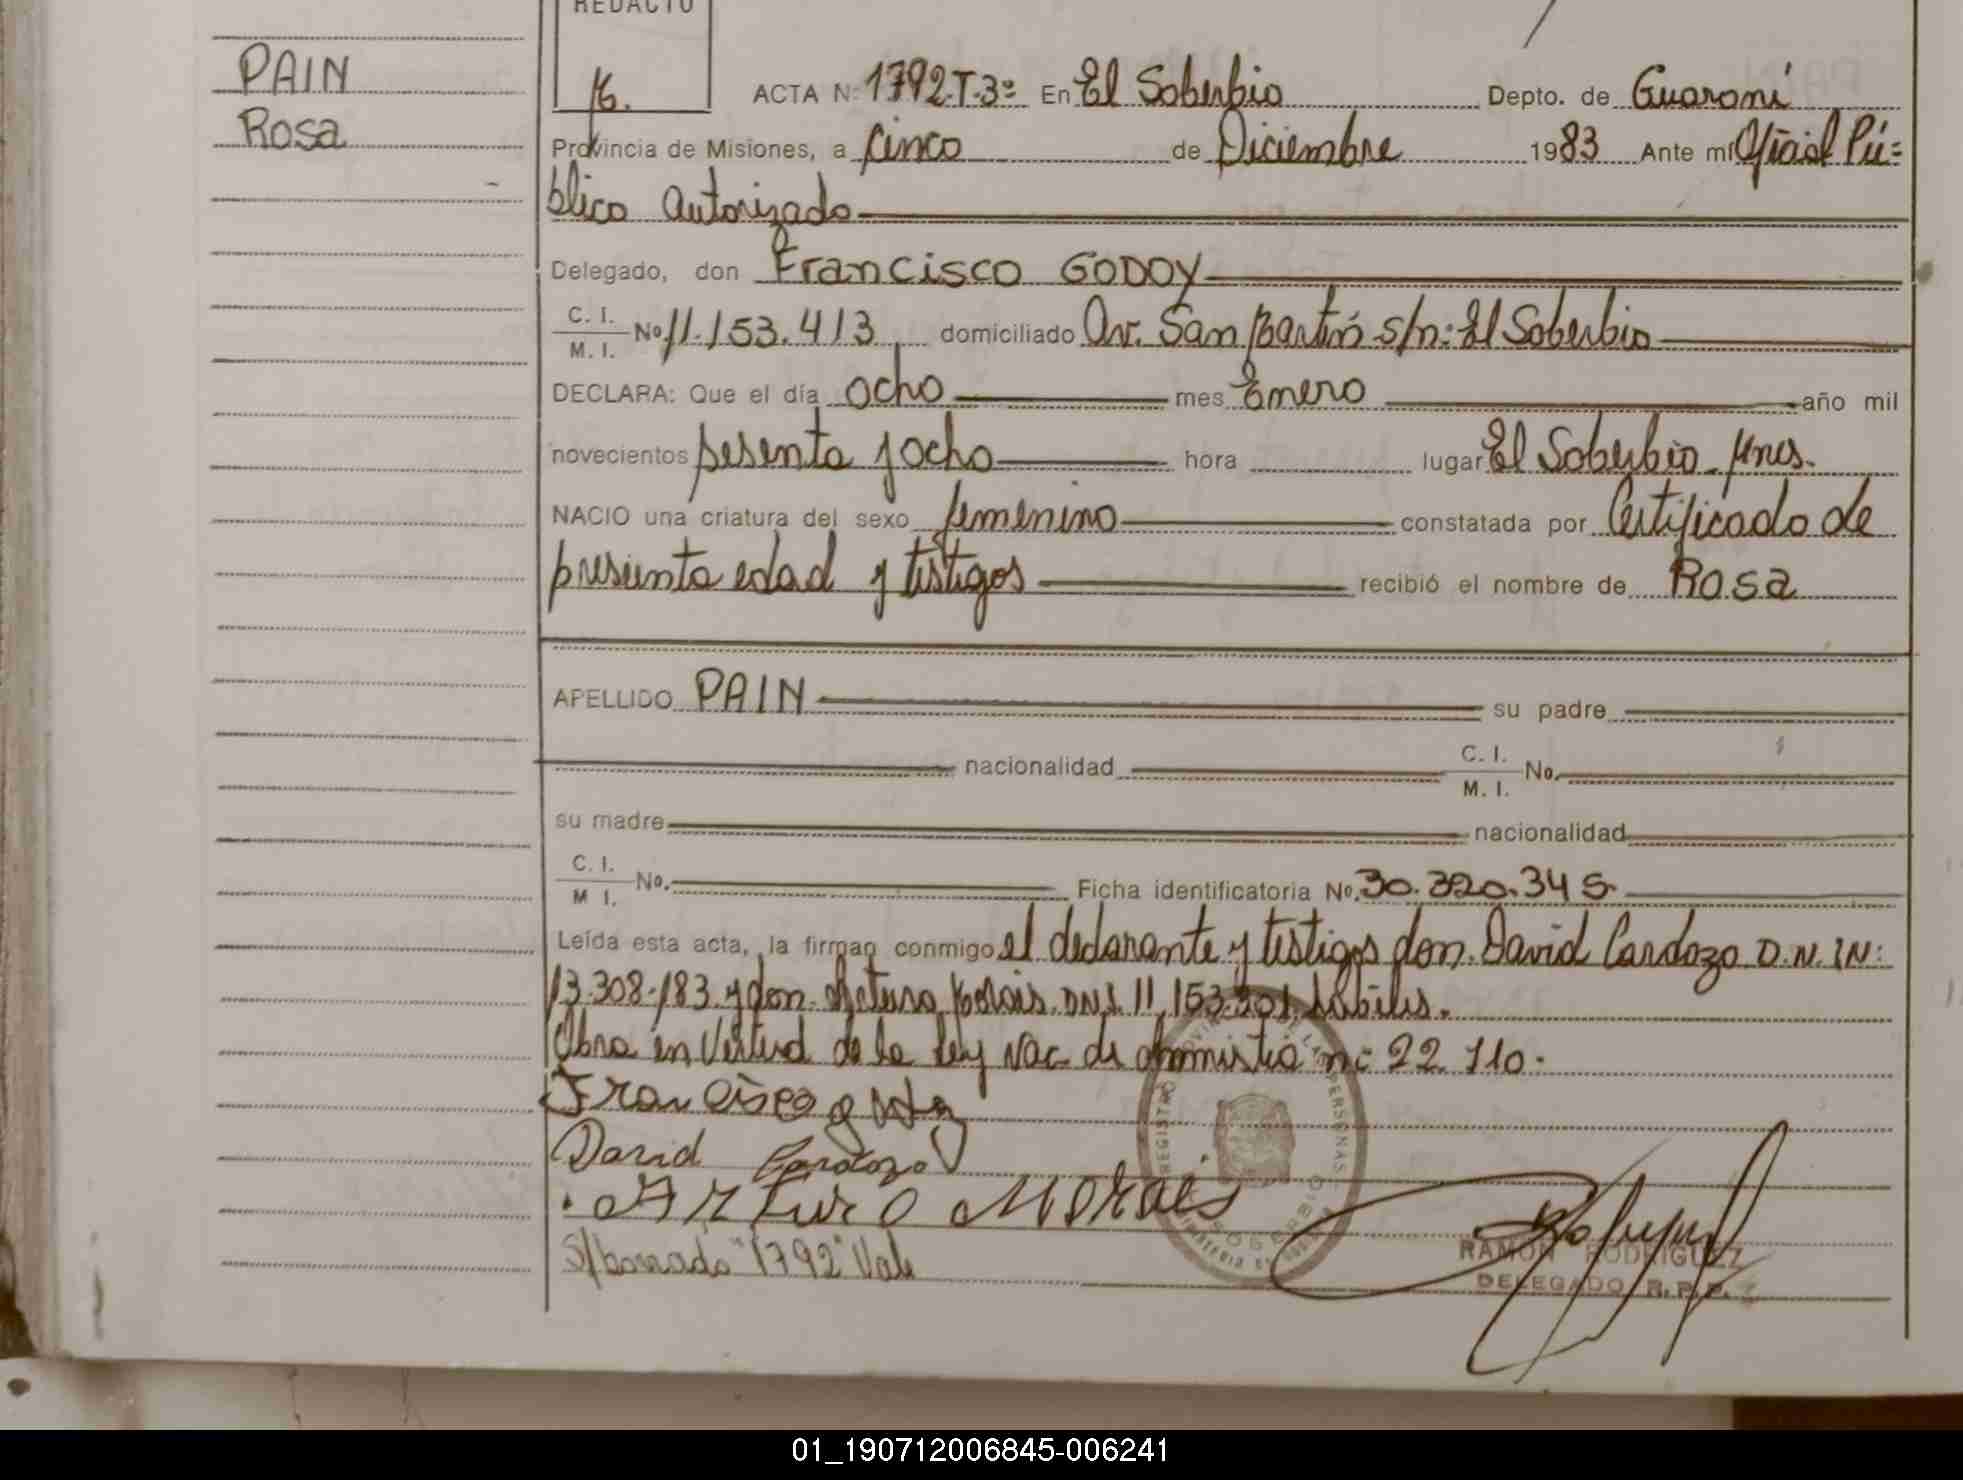 REDACTO
PAIN
Rosa
ACTA Nº 1792-T-3º En El Soberbio Depto. de Guaraní
Provincia de Misiones, a cinco de Diciembre 1983 Ante mí Oficial Pú=
blico Autorizado
Delegado, don Francisco GODOY
C. I. / M. I. Nº 11.153.413 domiciliado Av. San Martín s/n: El Soberbio
DECLARA: Que el día ocho mes Enero año mil
novecientos sesenta y ocho hora lugar El Soberbio - Mnes.
NACIO una criatura del sexo femenino constatada por Certificado de
presunta edad y testigos recibió el nombre de Rosa
APELLIDO PAIN su padre
nacionalidad C. I. / M. I. No.
su madre nacionalidad
C. I. / M I. No. Ficha identificatoria No. 30.320.345.
Leída esta acta, la firman conmigo el declarante y testigos don. David Cardozo D.N.I N:
13.308.183 y don. Arturo Morais. DNI. 11.153.301 hábiles.
Obra en Virtud de la ley Nac. de Amnistia nº 22.110.
Francisco
David Cardozo
Arturo Morais
S/borrado "1792" Vale
REGISTRO PROVINCIAL DE LAS PERSONAS
SOBERBIO
RAMON RODRIGUEZ
DELEGADO R. P. P.
01_190712006845-006241